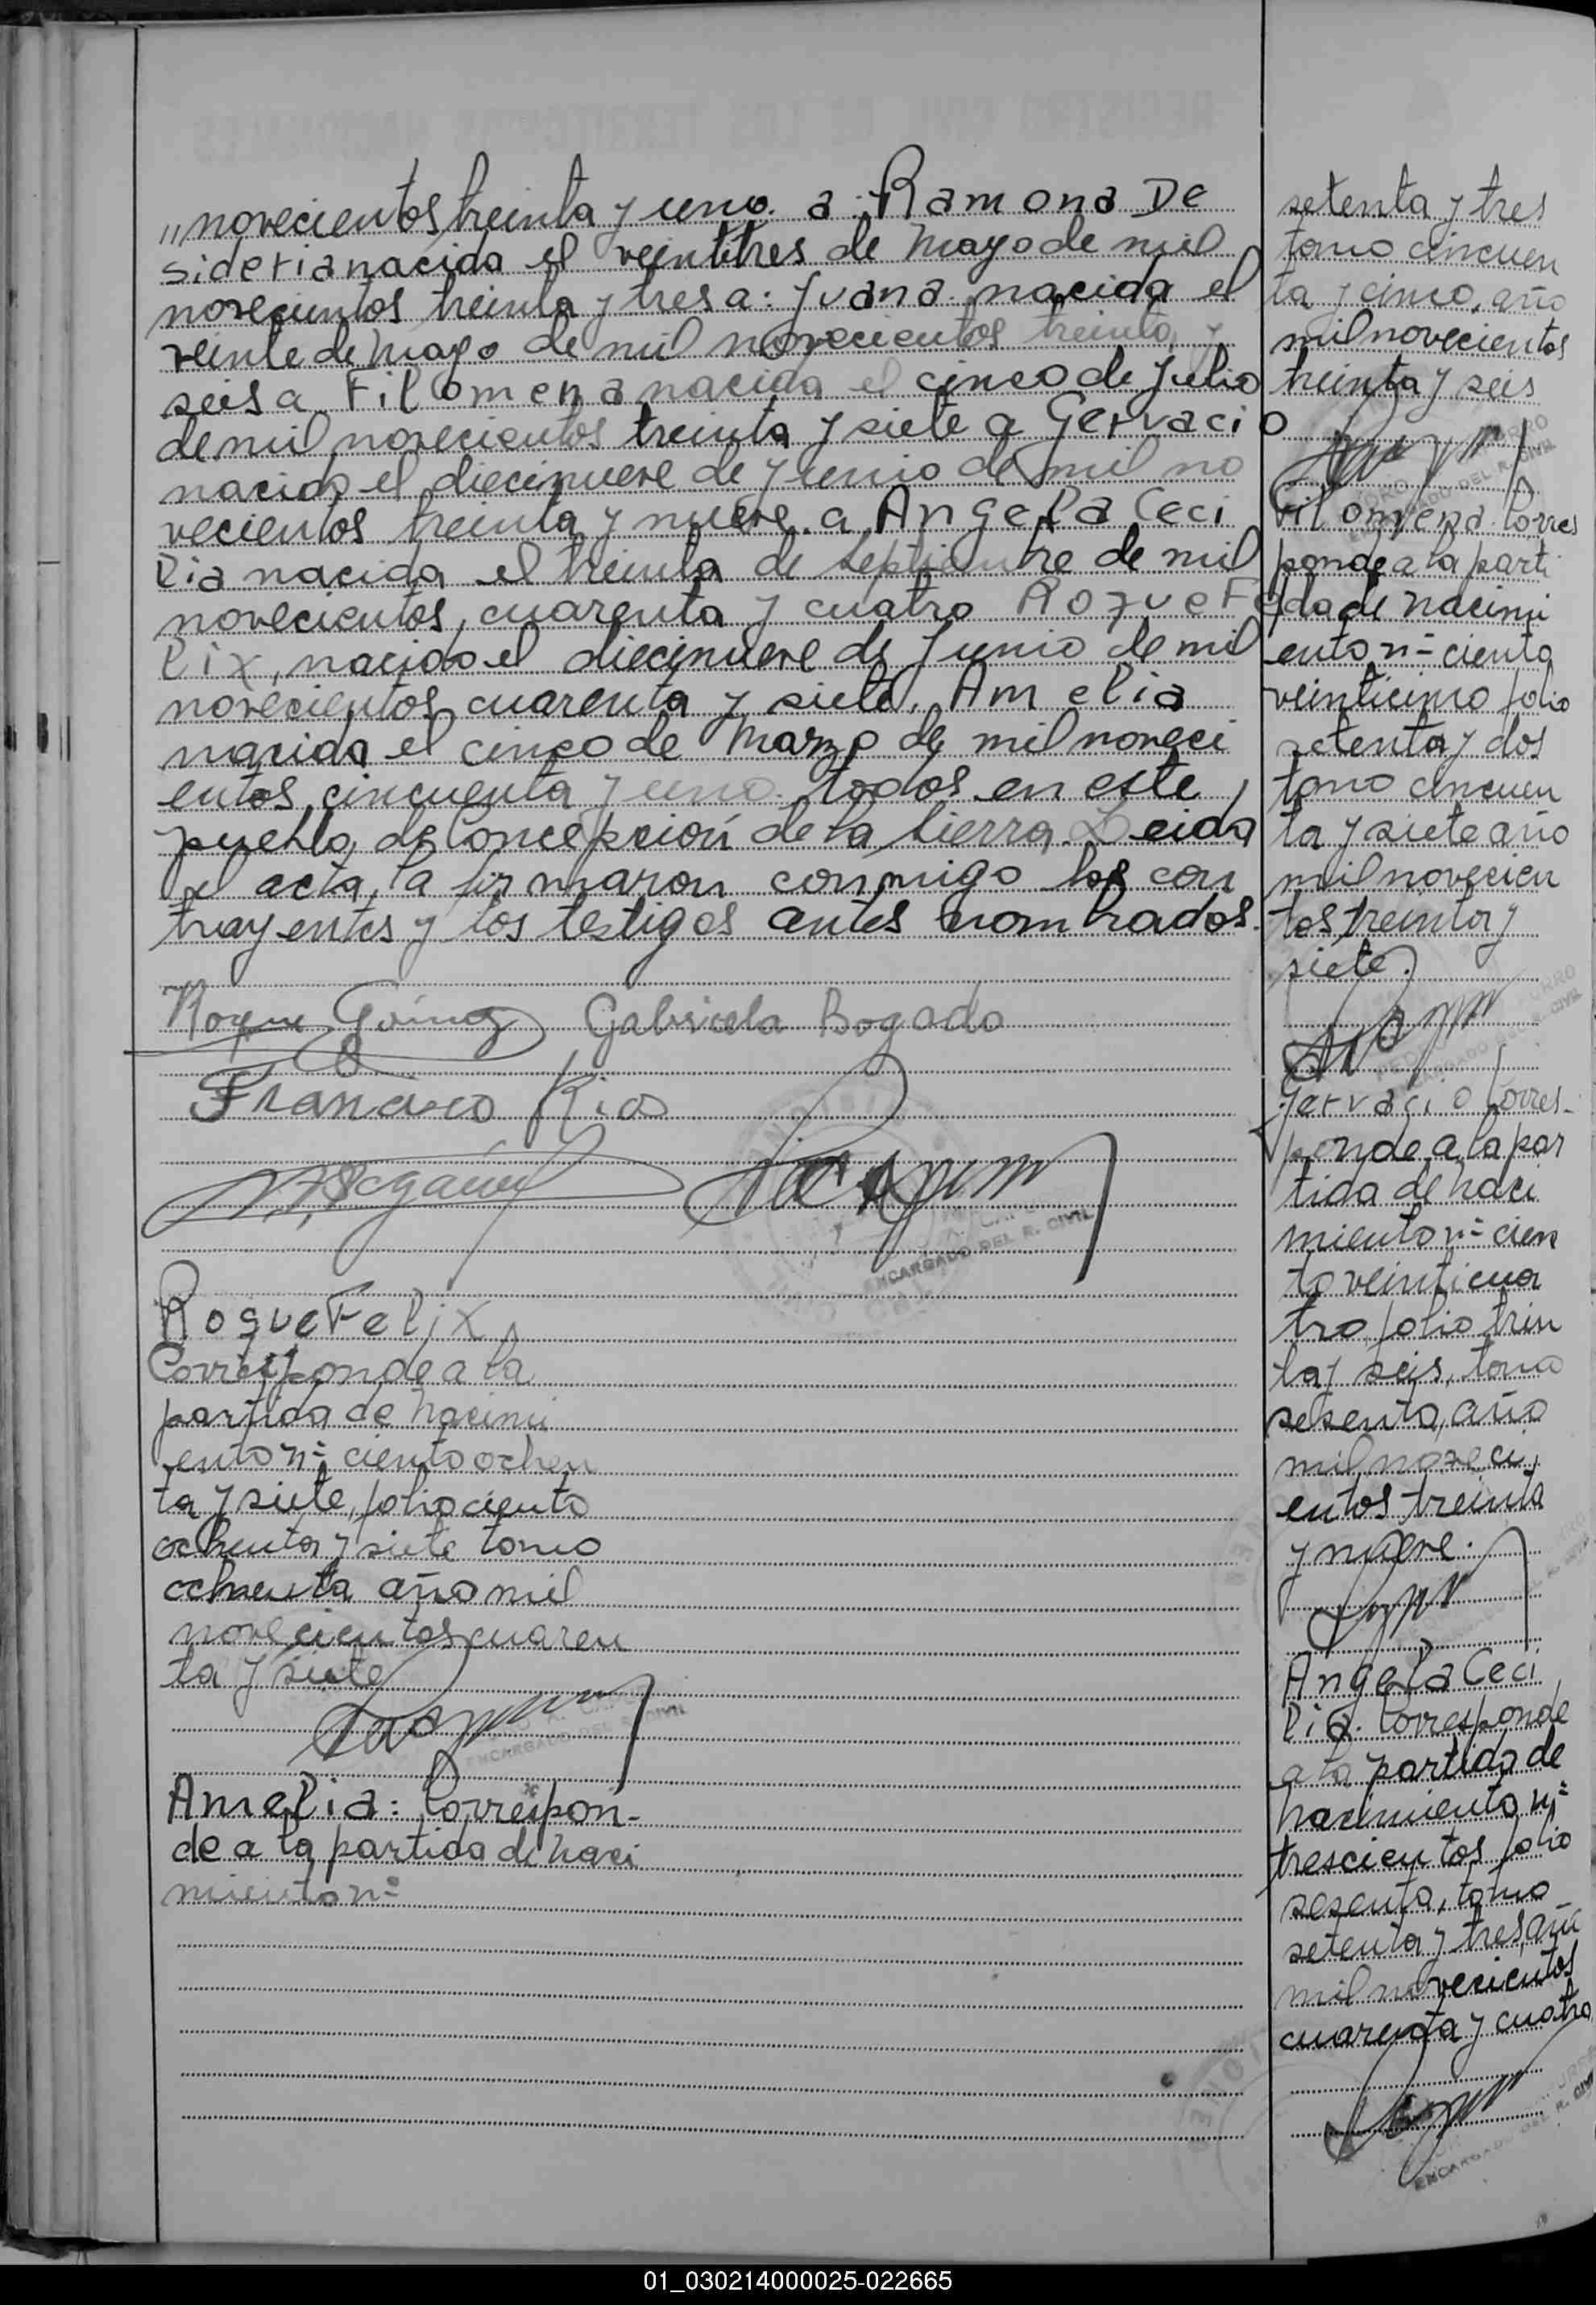 " novecientos treinta y uno. a: Ramona De
sideria nacida el veintitres de Mayo de mil
novecientos treinta y tres a: Juana nacida el
veinte de Mayo de mil novecientos treinta y
seis a Filomena nacida el cinco de Julio
de mil novecientos treinta y siete a Gervacio
nacido el diecinueve de Junio de mil no
vecientos treinta y nueve. a Angela Ceci
lia nacida el treinta de Septiembre de mil
novecientos, cuarenta y cuatro Roque Fe
lix, nacido el diecinueve de Junio de mil
novecientos cuarenta y siete. Amelia
nacida el cinco de Marzo de mil noveci
entos cincuenta y uno. todos en este
pueblo de Concepción de la Sierra. Leida
el acta, la firmaron conmigo los con
trayentes y los testigos antes nombrados.
Roque Gómez Gabriela Bogado
Francisco Rios
ENCARGADO DEL R. CIVIL
Roque Felix
Corresponde a la
partida de nacimi
ento nº ciento ochen
ta y siete, folio ciento
ochenta y siete tomo
ochenta año mil
novecientos cuaren
ta y siete
ENCARGADO DEL R. CIVIL
Amelia: Correspon-
de a la partida de naci
miento nº
setenta y tres
tomo cincuen
ta y cinco, año
mil novecientos
treinta y seis
ENCARGADO DEL R. CIVIL
Filomena. Corres
ponde a la parti
da de nacimi
ento nº ciento
veinticinco folio
setenta y dos
tomo cincuen
ta y siete año
mil novecien
tos treinta y
siete.
ENCARGADO DEL R. CIVIL
Gervacio Corres-
ponde a la par
tida de naci
miento nº cien
to veinticua
tro folio trein
ta y seis, tomo
sesenta, año
mil noveci
entos treinta
y nueve.
Angela Ceci
lia. Corresponde
a la partida de
nacimiento nº
trescientos folio
sesenta, tomo
setenta y tres, año
mil novecientos
cuarenta y cuatro
ENCARGADO DEL R. CIVIL
01_030214000025-022665